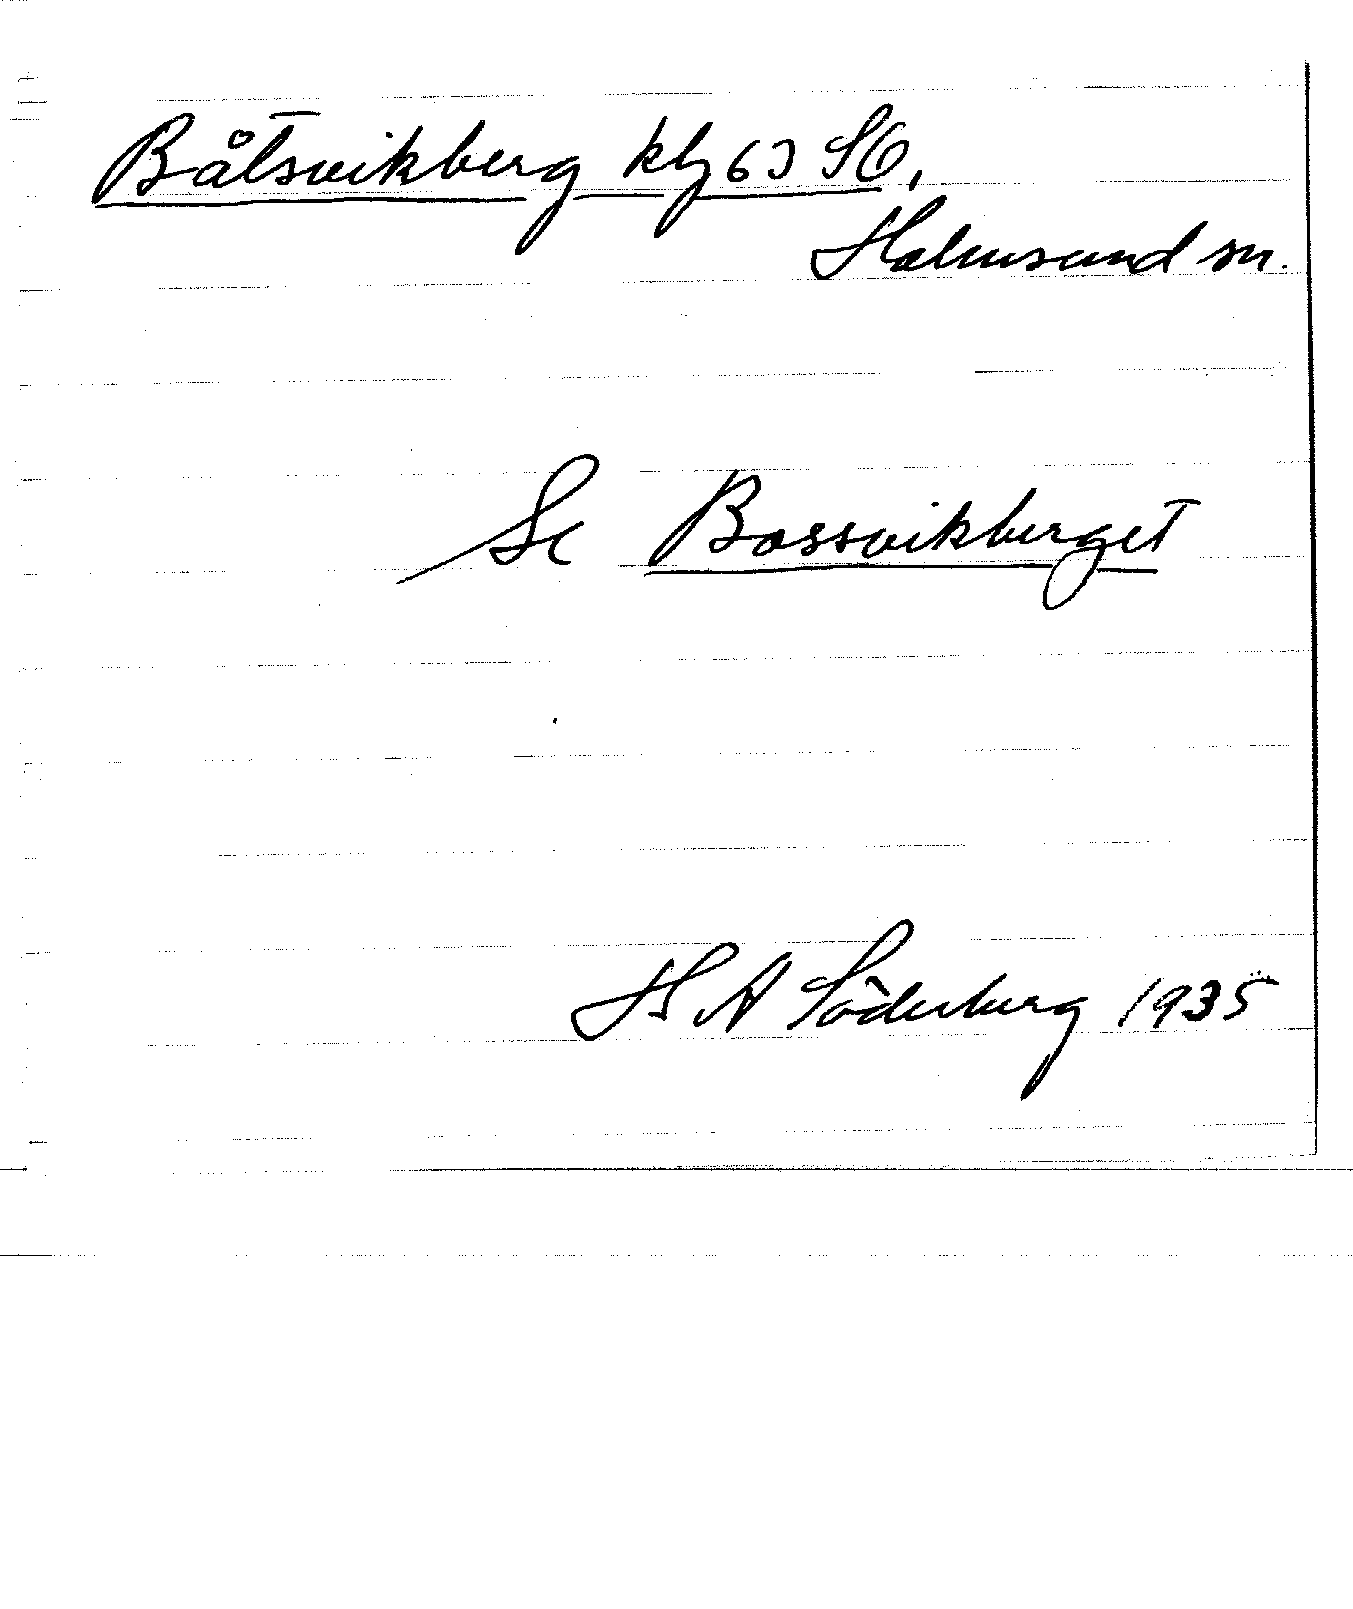 Båtsvikberg klj 63 SO,
Holmsund sn.
Se Bossvikberget
H A Söderberg 1935